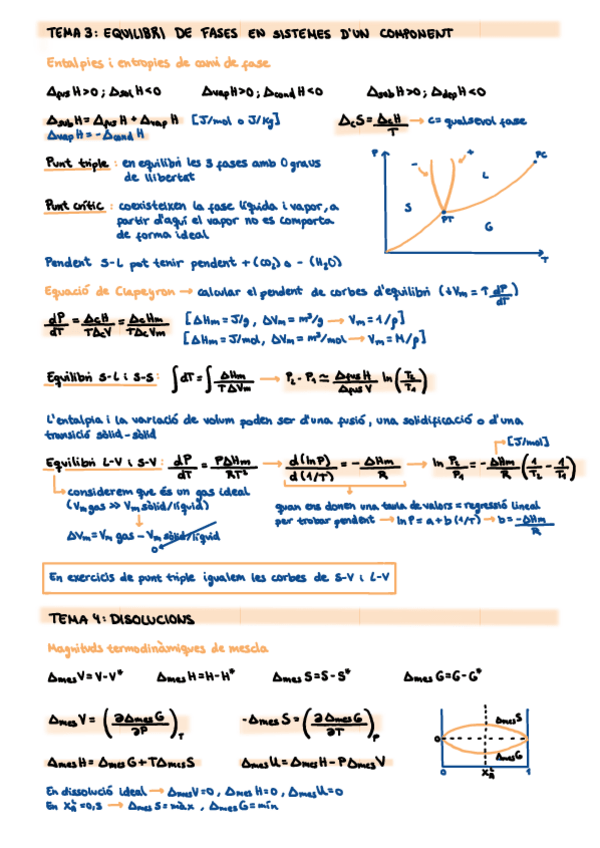 TEMA 3: EQUILIBRI DE FASES EN SISTEMES D'UN COMPONENT
Entalpies i entropies de canvi de fase
ΔfusH>0; ΔsolH<0 ΔvapH>0; ΔcondH<0 ΔsubH>0; ΔdepH<0
ΔsubH = ΔfusH + ΔvapH [J/mol o J/kg] ΔcS = ΔcH/T → c = qualsevol fase
ΔvapH = -ΔcondH
Punt triple: en equilibri les 3 fases amb 0 graus
de llibertat
Punt crític: coexisteixen la fase líquida i vapor, a
partir d'aquí el vapor no es comporta
de forma ideal
P - + PC
L
S
PT G
T
Pendent S-L pot tenir pendent + (CO₂) o - (H₂O)
Equació de Clapeyron → calcular el pendent de corbes d'equilibri (↓Vm = ↑ dP/dT)
dP/dT = ΔcH/TΔcV = ΔcHm/TΔcVm [ΔHm = J/g, ΔVm = m³/g → Vm = 1/ρ]
[ΔHm = J/mol, ΔVm = m³/mol → Vm = M/ρ]
Equilibri S-L i S-S: ∫dT = ∫ ΔHm/TΔVm → P₂ - P₁ ≃ ΔfusH/ΔfusV ln (T₂/T₁)
L'entalpia i la variació de volum poden ser d'una fusió, una solidificació o d'una
transició sòlid-sòlid
[J/mol]
Equilibri L-V i S-V: dP/dT = PΔHm/RT² → d(lnP)/d(1/T) = - ΔHm/R → ln P₂/P₁ = - ΔHm/R (1/T₂ - 1/T₁)
considerem que és un gas ideal
(Vm gas >> Vm sòlid/líquid)
ΔVm = Vm gas - Vm sòlid/líquid
0
quan ens donen una taula de valors = regressió lineal
per trobar pendent → lnP = a + b (1/T) → b = -ΔHm/R
En exercicis de punt triple igualem les corbes de S-V i L-V
TEMA 4: DISOLUCIONS
Magnituds termodinàmiques de mescla
ΔmesV = V-V* ΔmesH = H-H* ΔmesS = S-S* ΔmesG = G-G*
ΔmesV = (∂ΔmesG/∂P)T -ΔmesS = (∂ΔmesG/∂T)P
ΔmesH = ΔmesG + TΔmesS ΔmesU = ΔmesH - PΔmesV
ΔmesS
0
ΔmesG
0 1
En dissolució ideal → ΔmesV=0, ΔmesH=0, ΔmesU=0
=0,5 → ΔmesS = màx, ΔmesG = mín